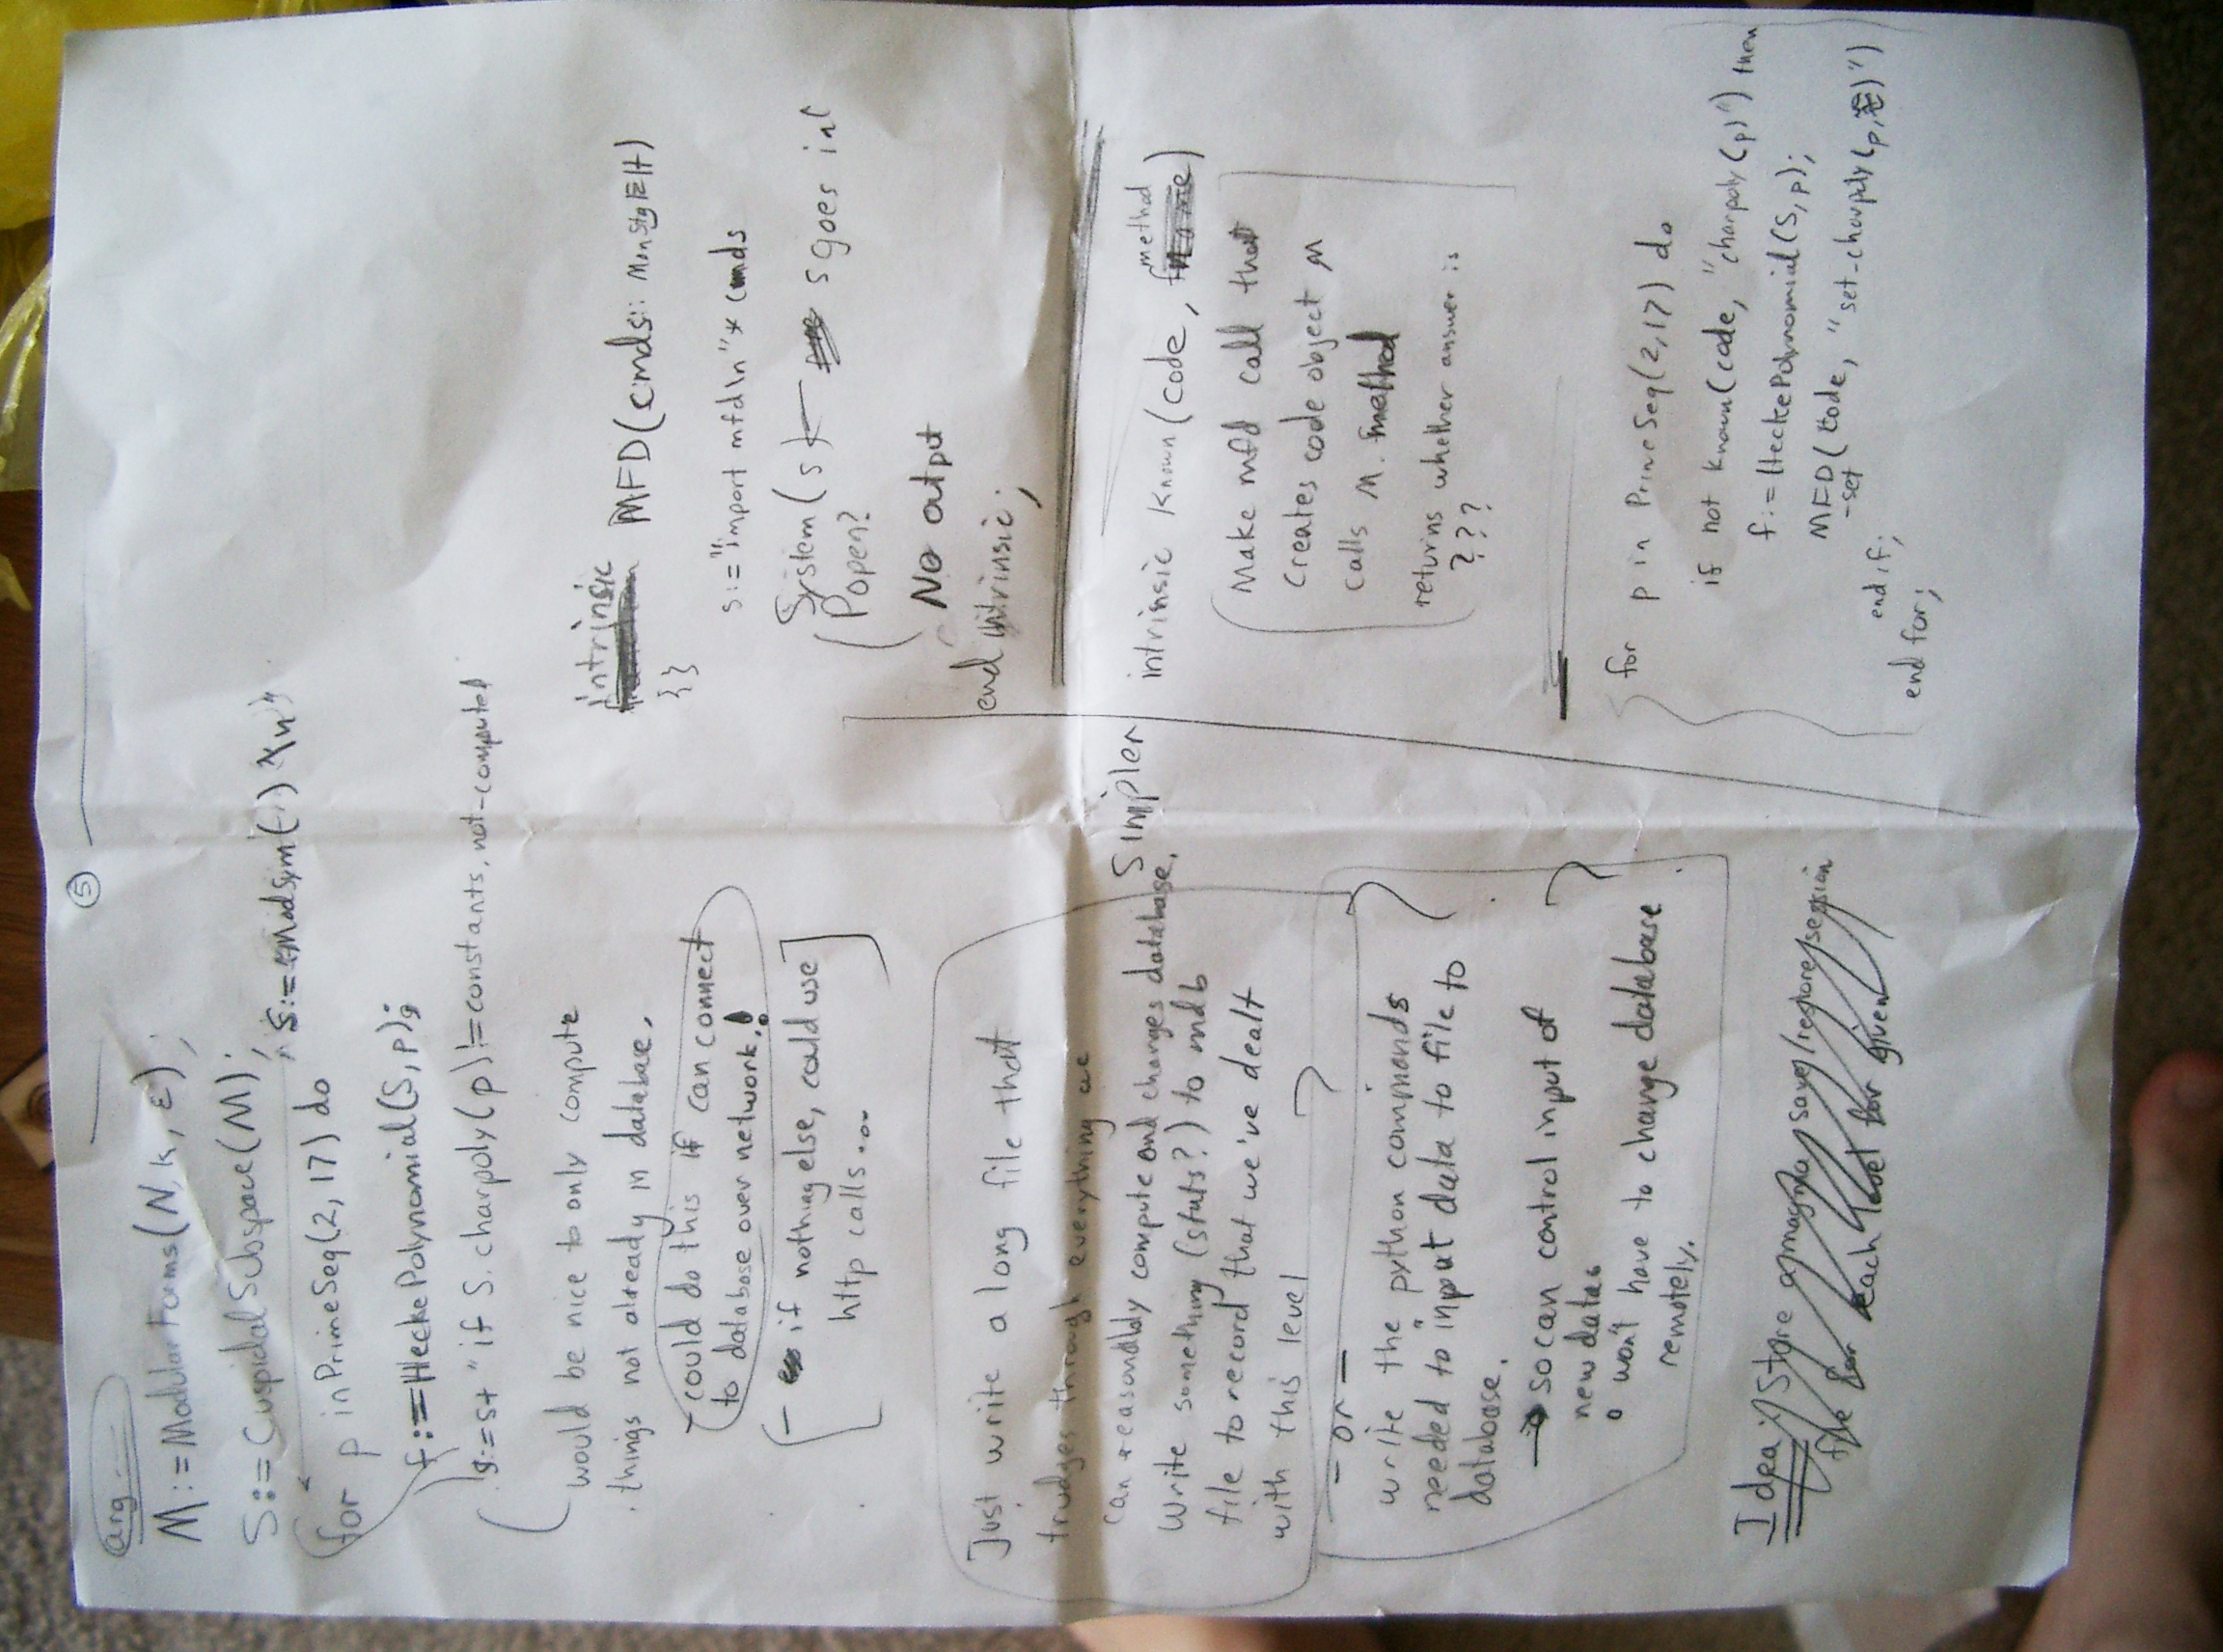 ⑤
arg
M := ModularForms(N, k, ε);
S := CuspidalSubspace(M);
S := "ModSym(·)\n"
for p in PrimeSeq(2, 17) do
f := HeckePolynomial(S, p);
g := s+"if S.charpoly(p)!=constants.not-computed
would be nice to only compute
things not already in database.
- could do this if can connect
to database over network!
- if nothing else, could use
http calls...
Just write a long file that
trudges through everything we
can reasonably compute and changes database.
Write something (stuts?) to mdb
file to record that we've dealt
with this level
- or -
write the python commands
needed to input data to file to
database.
→ so can control input of
new data
o won't have to change database
remotely.
Idea: Store a magma save/restore session
file for each level for given
intrinsic MFD(cmds:: MonStgElt)
{}
s := "import mfd\n" * cmds
System(s) ← s goes in
(Popen?
No output
end intrinsic;
Simpler
intrinsic known(code, method)
Make mfd call that
creates code object M
calls M.method
returns whether answer is
???
for p in PrimeSeq(2, 17) do
if not known(code, "charpoly(p)") then
f := HeckePolynomial(S, p);
MFD(code, "set-charpoly(p, f)")
-set
end if;
end for;